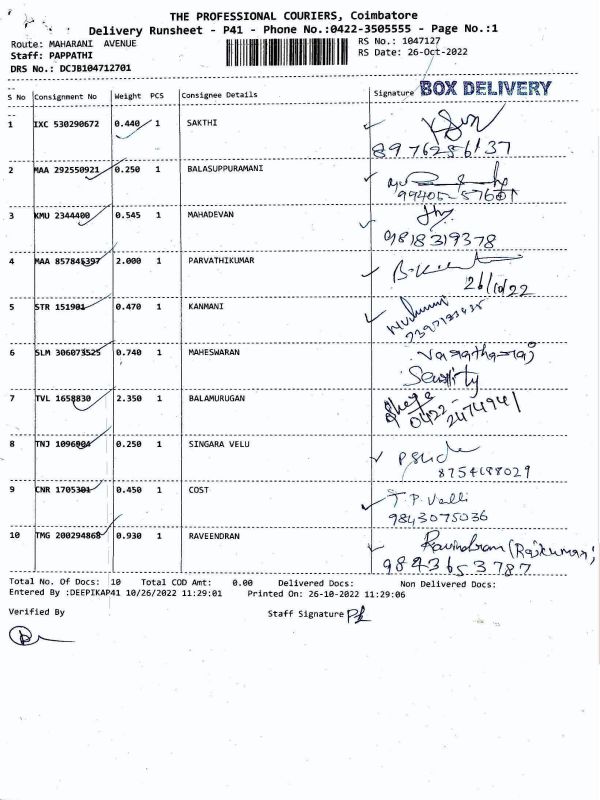 THE PROFESSIONAL COURIERS, Coimbatore
Delivery Runsheet - P41 - Phone No.:0422-3505555 - Page No.:1
Route: MAHARANI AVENUE RS No.: 1047127
Staff: PAPPATHI RS Date: 26-Oct-2022
DRS No.: DCJB104712701
BOX DELIVERY
S No Consignment No Weight PCS Consignee Details Signature
1 IXC 530290672 0.440 1 SAKTHI
8976256137
2 MAA 292550921 0.250 1 BALASUPPURAMANI
99405-57601
3 KMU 2344400 0.545 1 MAHADEVAN
9818319378
4 MAA 857845397 2.000 1 PARVATHIKUMAR
26/10/22
5 STR 151901 0.470 1 KANMANI
6 SLM 306073525 0.740 1 MAHESWARAN
Security
7 TVL 1658830 2.350 1 BALAMURUGAN
0422-2474941
8 TNJ 1096004 0.250 1 SINGARA VELU
8754188029
9 CNR 1705301 0.450 1 COST
T.P. Valli
9843075036
10 TMG 200294868 0.930 1 RAVEENDRAN
Ravindran (Rajkumar)
9843653787
Total No. Of Docs: 10 Total COD Amt: 0.00 Delivered Docs: Non Delivered Docs:
Entered By :DEEPIKAP41 10/26/2022 11:29:01 Printed On: 26-10-2022 11:29:06
Verified By Staff Signature